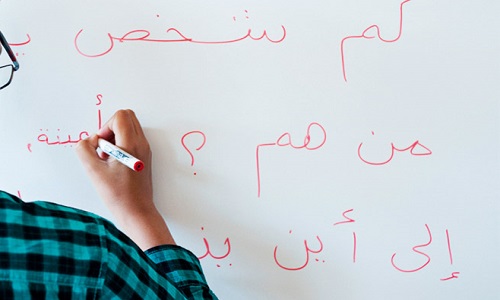 كم شخص
من هم ؟ أمينة,
إلى أين